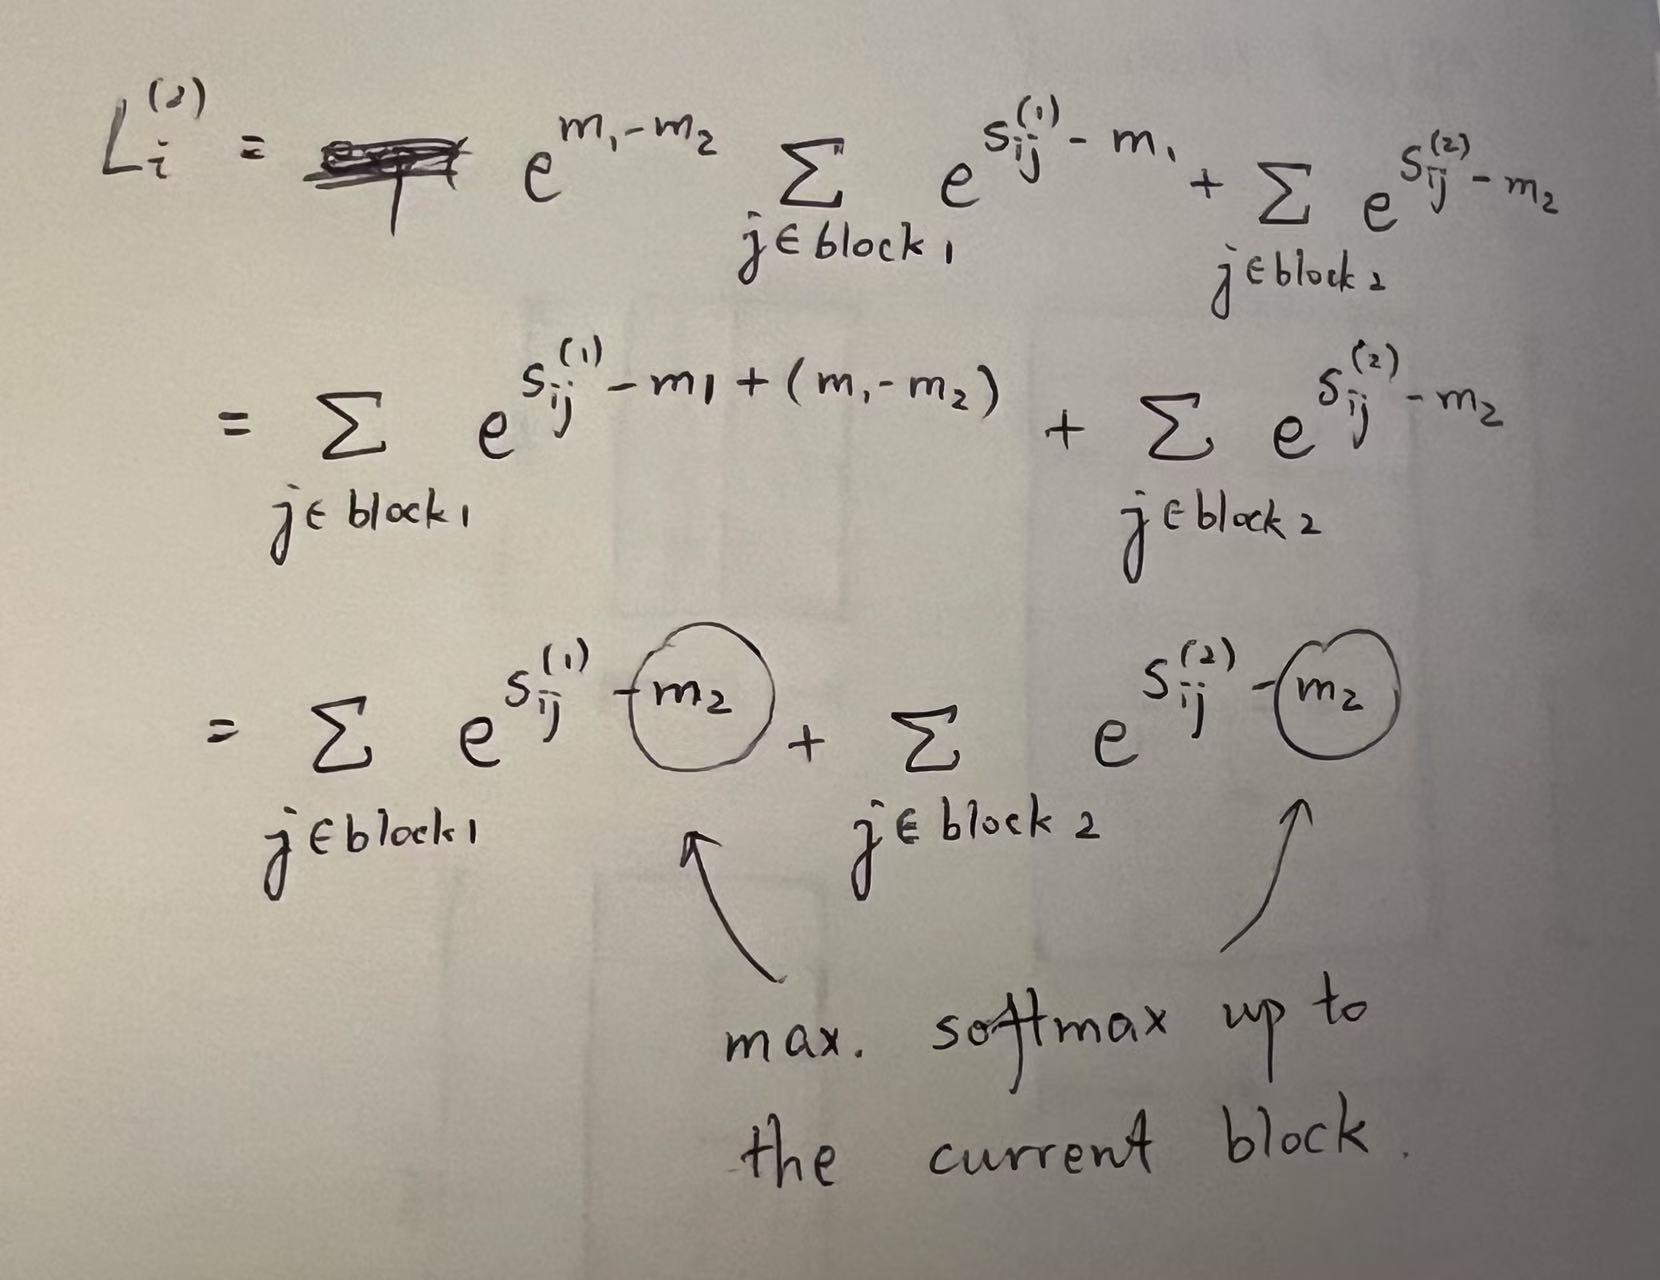 L_i^(2) = e^(m₁-m₂) Σ_(j∈block 1) e^(S_ij^(1) - m₁) + Σ_(j∈block 2) e^(S_ij^(2) - m₂)
= Σ_(j∈block 1) e^(S_ij^(1) - m₁ + (m₁-m₂)) + Σ_(j∈block 2) e^(S_ij^(2) - m₂)
= Σ_(j∈block 1) e^(S_ij^(1) - m₂) + Σ_(j∈block 2) e^(S_ij^(2) - m₂)
max. softmax up to
the current block.